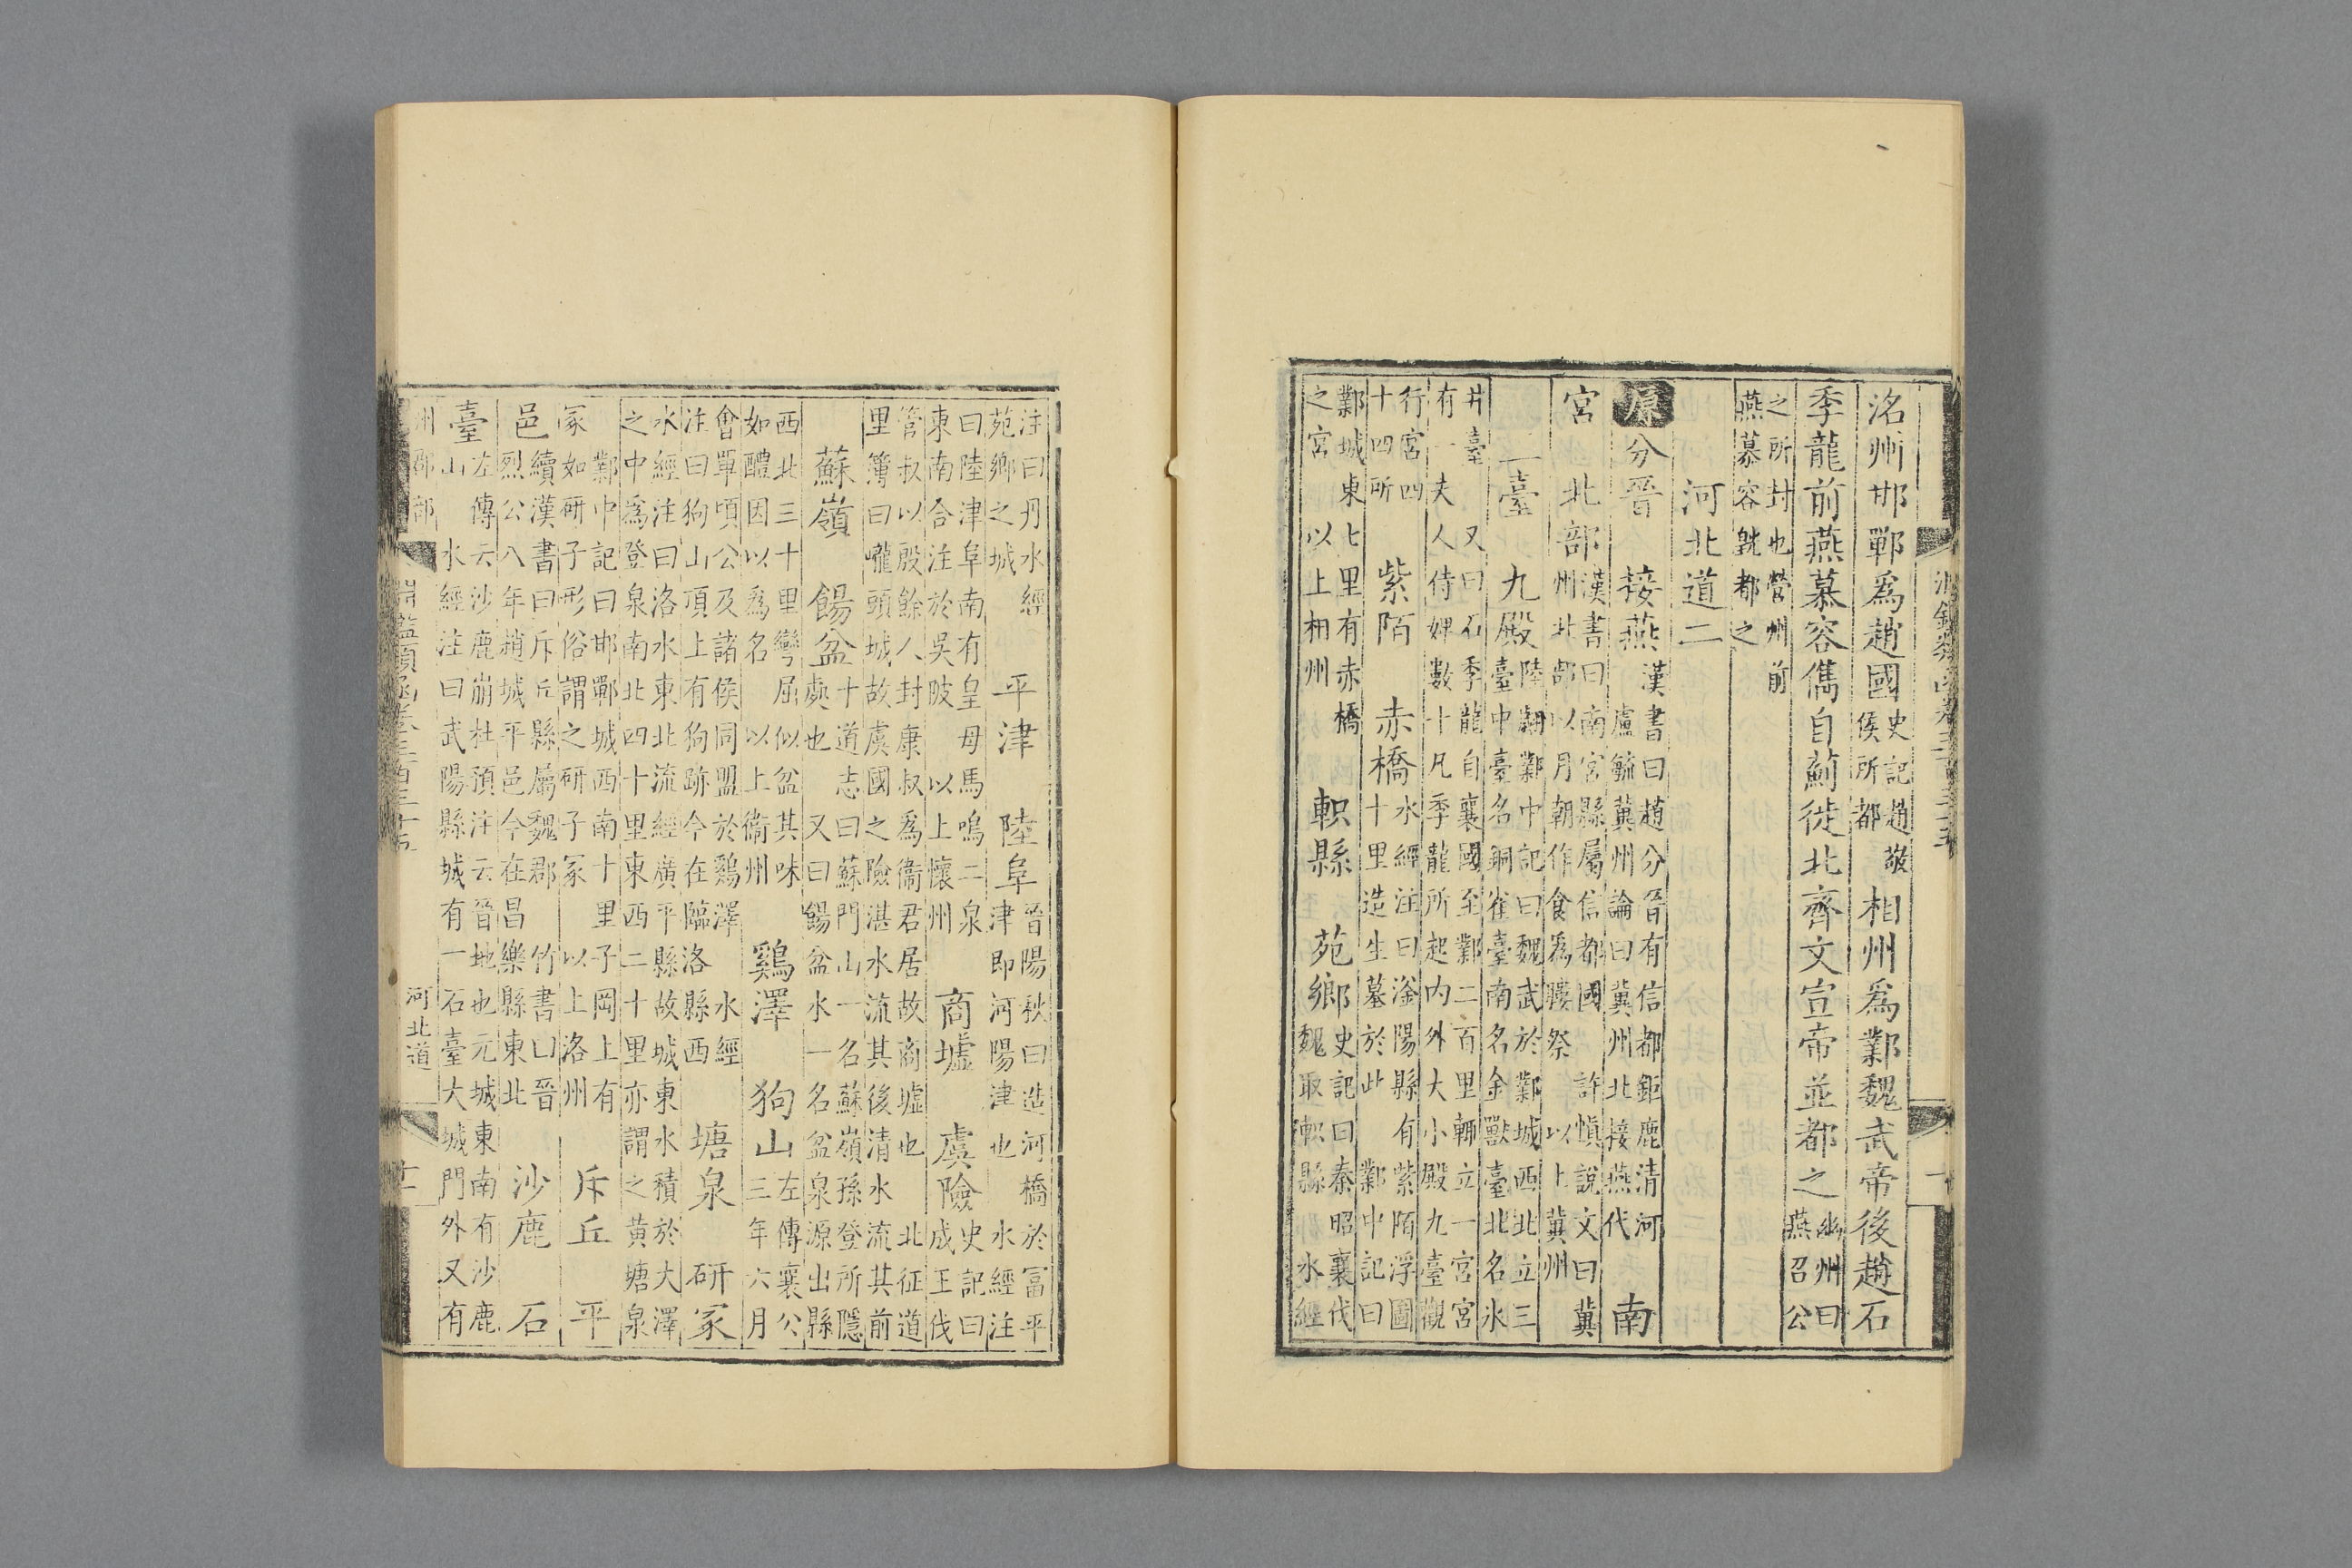 洺州邯鄲爲趙國史記趙敬侯所都相州爲鄴魏武帝後趙石
季龍前燕慕容儁自薊徙北齊文宣帝並都之幽州曰燕召公
之所封也營州前燕慕容皝都之
河北道二
原分晉 接燕漢書曰趙分晉有信都鉅鹿清河盧毓冀州論曰冀州北接燕代 南
宮漢書曰南宮縣屬信都國 北部許慎說文曰冀州北部以月朝作食爲膢祭以上冀州
二臺 九殿陸翽鄴中記曰魏武於鄴城西北立三臺中臺名銅雀臺南名金獸臺北名氷
井臺 又曰石季龍自襄國至鄴二百里輒立一宮宮有一夫人侍婢數十凡季龍所起內外大小殿九臺觀
行宮四十四所 紫陌 赤橋水經注曰滏陽縣有紫陌浮圖十里造生墓於此 鄴中記曰
鄴城東七里有赤橋之宮 以上相州 軹縣 苑鄉史記曰秦昭襄伐魏取軹縣 水經
注曰丹水經苑鄉之城 平津 陸阜晉陽秋曰造河橋於富平津即河陽津也 水經注
曰陸津阜南有皇母馬鳴二泉東南合注於吳陂 以上懷州 商墟 虞險史記曰成王伐
管叔以殷餘人封康叔爲衞君居故商墟也 北征道里簿曰嚨頭城故虞國之險湛水流其後清水流其前
蘇嶺 餳盆十道志曰蘇門山一名蘇嶺孫登所隱處也 又曰餳盆水一名盆泉源出縣
西北三十里彎屈似盆其味如醴因以爲名 以上衞州 鷄澤 狗山左傳襄公三年六月
會單頃公及諸侯同盟於鷄澤 水經注曰狗山頂上有狗跡今在臨洛縣西 塘泉 研冢
水經注曰洛水東北流經廣平縣故城東水積於大澤之中爲登泉南北四十里東西二十里亦謂之黄塘泉
鄴中記曰邯鄲城西南十里子岡上有冢如研子形俗謂之研子冢 以上洛州 斥丘 平
邑續漢書曰斥丘縣屬魏郡 竹書曰晉烈公八年趙城平邑今在昌樂縣東北 沙鹿 石
臺左傳云沙鹿崩杜預注云晉地也元城東南有沙鹿山 水經注曰武陽縣城有一石臺大城門外又有
河北道